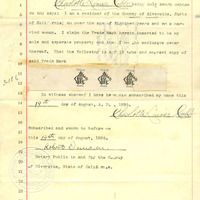 Charlotte Cabb being duly sworn
on oath says: I am a resident of the County of Riverside, State
of California; am over the age of eighteen years and am a mar-
ried woman. I claim the Trade Mark hereto inserted to be my
sole and separate property and that I am the exclusive owner
thereof. That the following is a full true and correct copy
of said Trade Mark
In witness whereof I have hereunto subscribed my name this
19th day of August, A. D., 1896.
Subscribed and sworn to before me
this 19th day of August, 1896.
Notary Public in and for the County
of Riverside, State of California.